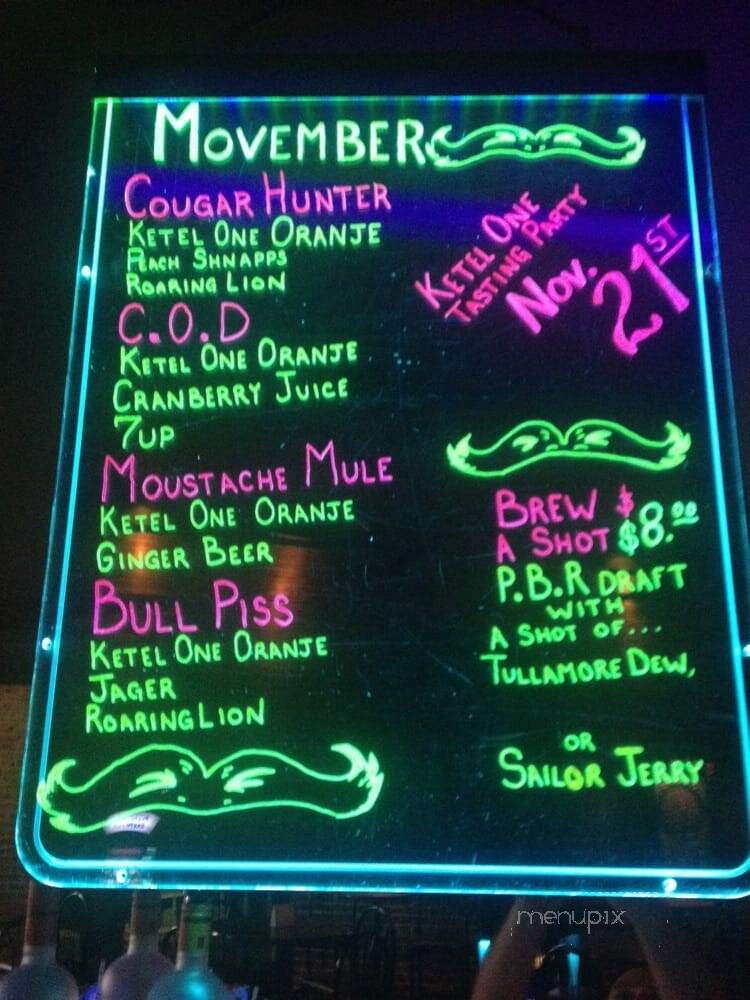 MOVEMBER
COUGAR HUNTER
KETEL ONE ORANJE
PEACH SHNAPPS
ROARING LION
C.O.D
KETEL ONE ORANJE
CRANBERRY JUICE
7UP
MOUSTACHE MULE
KETEL ONE ORANJE
GINGER BEER
BULL PISS
KETEL ONE ORANJE
JAGER
ROARING LION
KETEL ONE
TASTING PARTY
NOV. 21ST
BREW $
A SHOT $8.00
P.B.R DRAFT
WITH
A SHOT OF...
TULLAMORE DEW,
OR
SAILOR JERRY
menupix